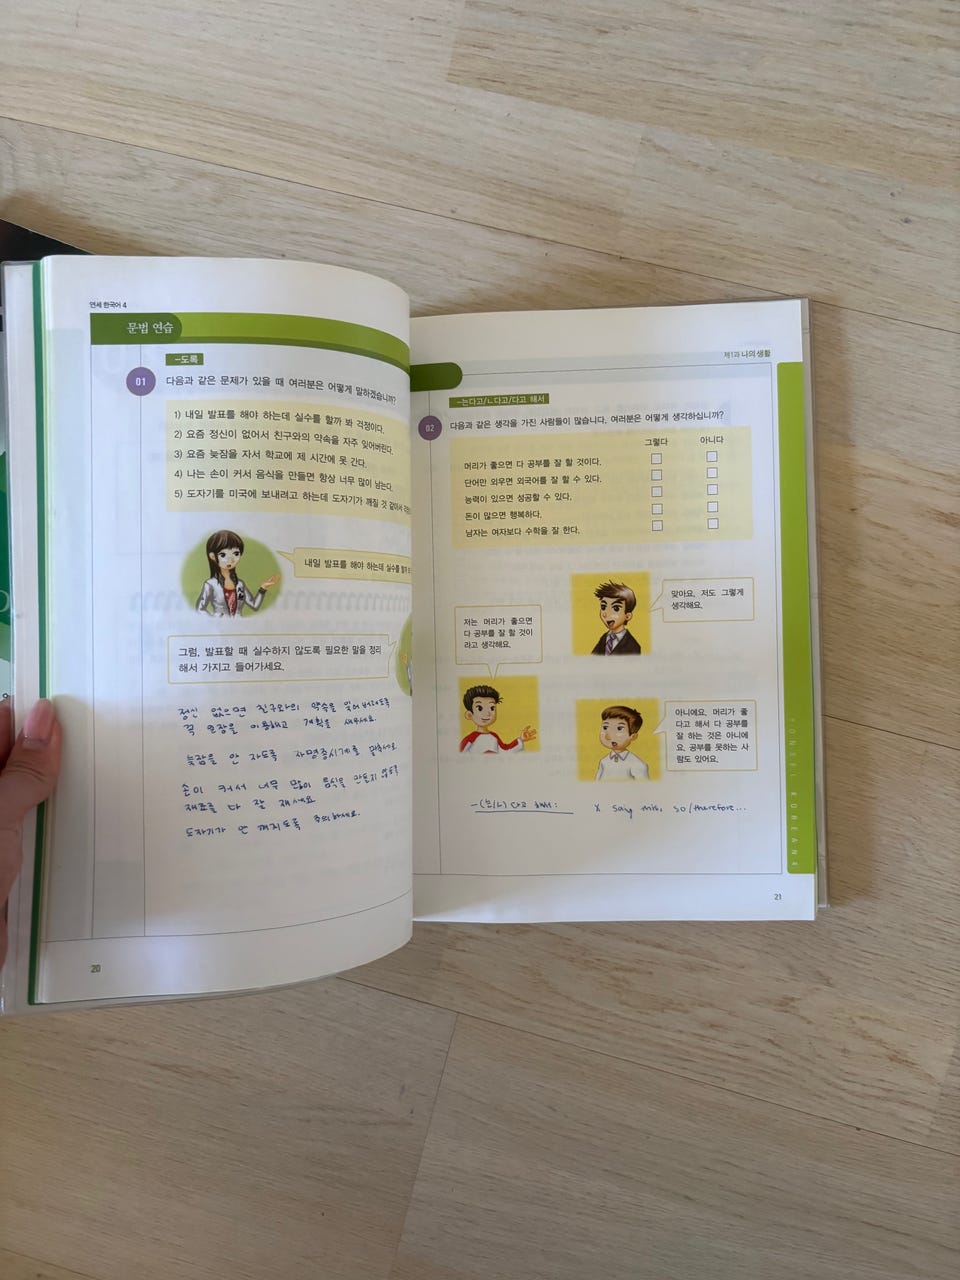 연세 한국어 4
문법 연습
-도록
01
다음과 같은 문제가 있을 때 여러분은 어떻게 말하겠습니까?
1) 내일 발표를 해야 하는데 실수를 할까 봐 걱정이다.
2) 요즘 정신이 없어서 친구와의 약속을 자주 잊어버린다.
3) 요즘 늦잠을 자서 학교에 제 시간에 못 간다.
4) 나는 손이 커서 음식을 만들면 항상 너무 많이 남는다.
5) 도자기를 미국에 보내려고 하는데 도자기가 깨질 것 같아서
내일 발표를 해야 하는데 실수를 할까
그럼, 발표할 때 실수하지 않도록 필요한 말을 정리
해서 가지고 들어가세요.
정신 없으면 친구와의 약속을 잊어버리도록
꼭 을 이용하고 계획을 세우세요.
늦잠을 안 자도록 자명종시계를
손이 커서 너무 많이 음식을 만들지 않도록
재료를 다 잘 재세요.
도자기가 안 깨지도록 주의하세요.
20
제1과 나의 생활
-는다고/ㄴ다고/다고 해서
02
다음과 같은 생각을 가진 사람들이 많습니다. 여러분은 어떻게 생각하십니까?
그렇다 아니다
머리가 좋으면 다 공부를 잘 할 것이다.
단어만 외우면 외국어를 잘 할 수 있다.
능력이 있으면 성공할 수 있다.
돈이 많으면 행복하다.
남자는 여자보다 수학을 잘 한다.
맞아요. 저도 그렇게
생각해요.
저는 머리가 좋으면
다 공부를 잘 할 것이
라고 생각해요.
아니에요. 머리가 좋
다고 해서 다 공부를
잘 하는 것은 아니에
요. 공부를 못하는 사
람도 있어요.
-(는/ㄴ)다고 해서: X saig this, so/therefore...
YONSEI KOREAN 4
21